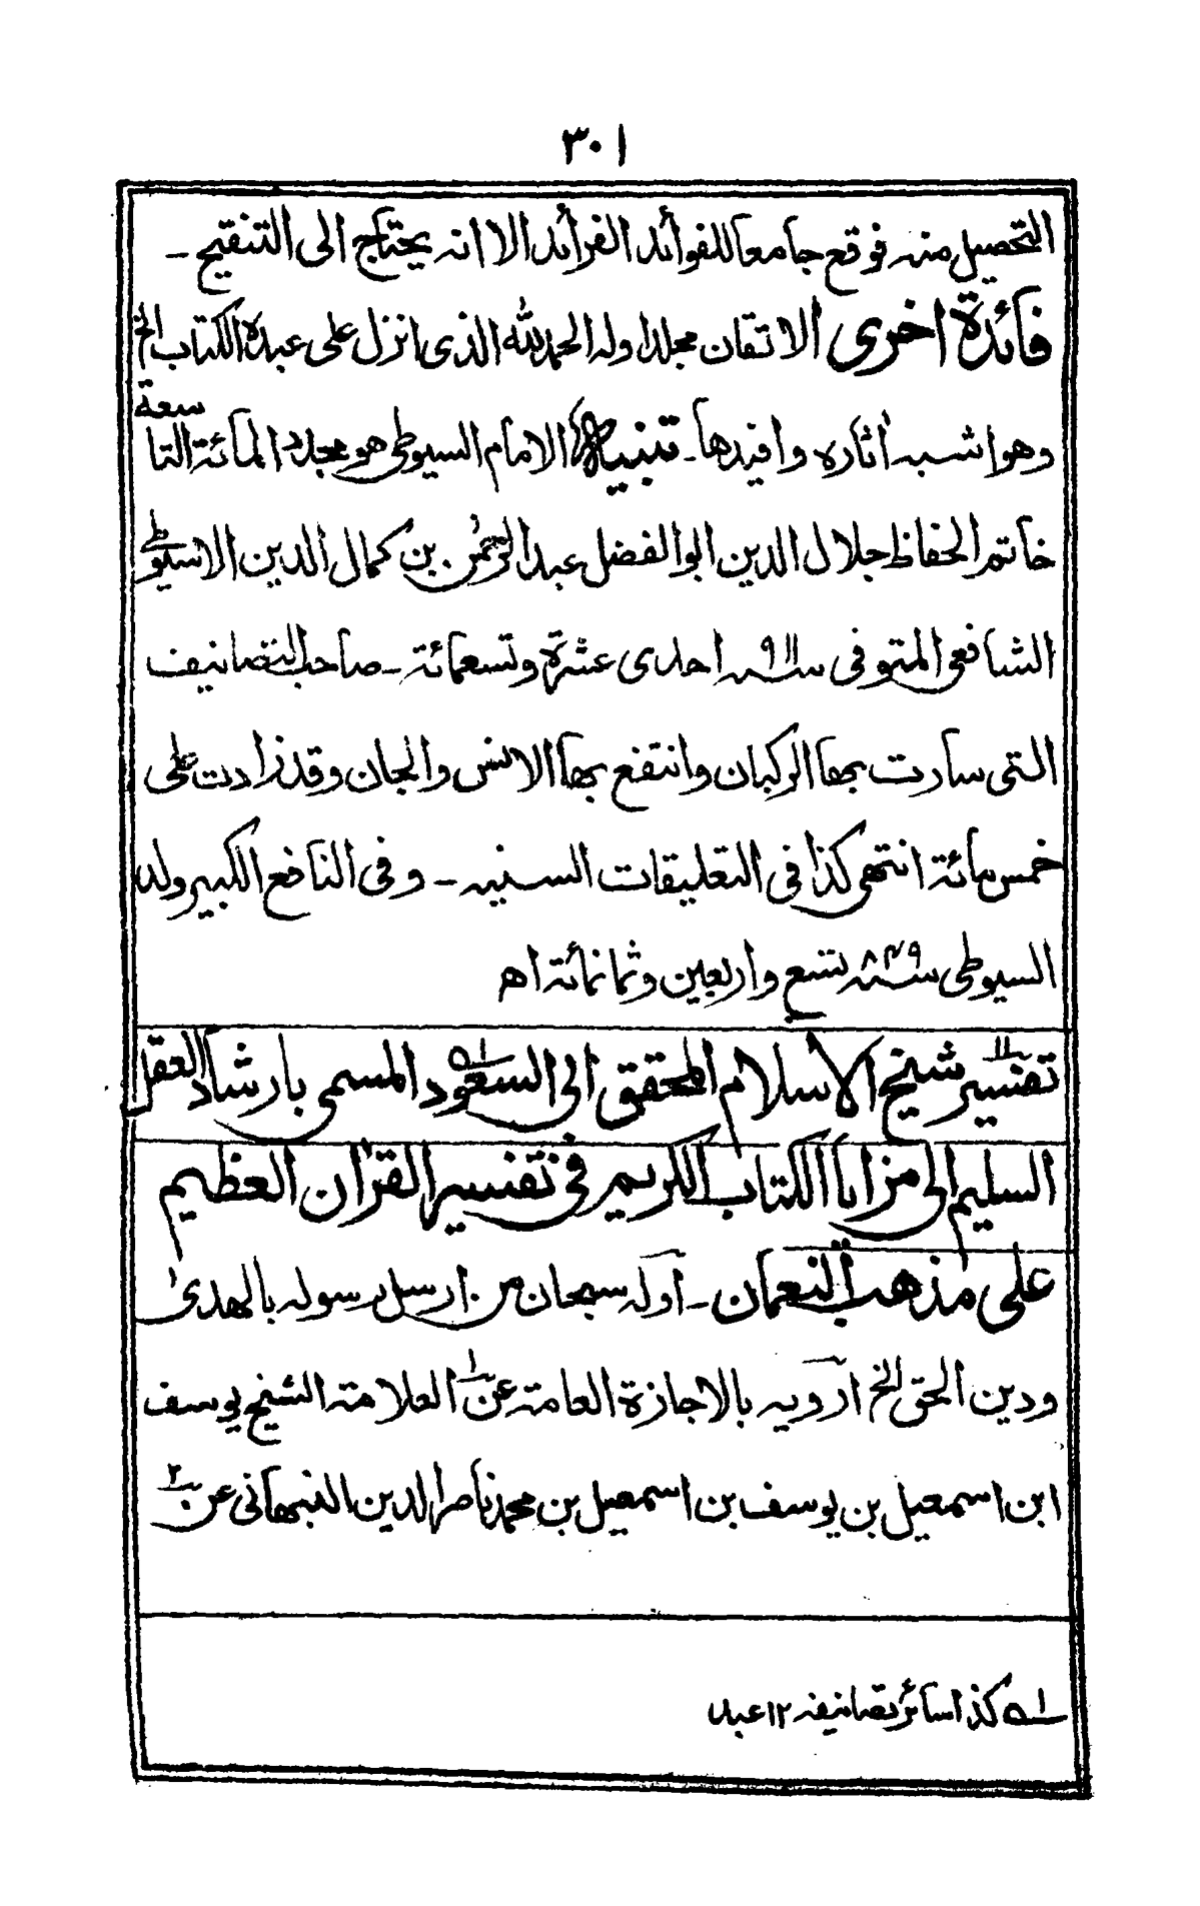 ٣٠١
التحصيل منه فوقع جامعا للفوائد الفرائد الا انه يحتاج الى التنقيح ـ
فائدة اخرى الاتقان مجلد اوله الحمد لله الذى انزل على عبده الكتاب الخ
وهو اشبه اثاره وافيدها ـ تنبيه الامام السيوطى هو مجدد المائة التاسعة
خاتم الحفاظ جلال الدين ابو الفضل عبد الرحمٰن بن كمال الدين الاسيوطى
الشافعى المتوفى سنه ٩١١ احدى عشرة وتسعمائة ـ صاحب التصانيف
التى سارت بها الركبان وانتفع بها الانس والجان وقد زادت على
خمس مائة انتهى كذا فى التعليقات السنيه ـ وفى النافع الكبير ولد
السيوطى سنه ٨٤٩ تسع واربعين وثمانمائة اه
تفسير شيخ الاسلام المحقق ابى السعود المسمى بارشاد العقل
السليم الى مزايا الكتاب الكريم فى تفسير القرآن العظيم
على مذهب النعمان ـ اوله سبحان من ارسل رسوله بالهدىٰ
ودين الحق الخ ارويه بالاجازة العامة عن ١ العلامة الشيخ يوسف
ابن اسمعيل بن يوسف بن اسمعيل بن محمد ناصر الدين النبهانى عن ٢
١ه كذا سائر تصانيفه ١٢ عبد